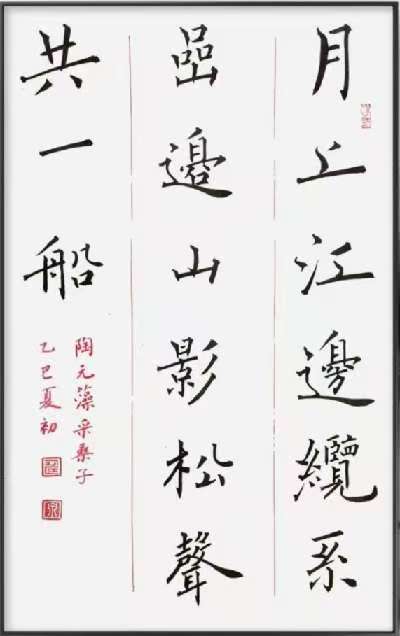 月上江邊纜系
嵒邊山影松聲
共一船
陶元藻采桑子
乙巳夏初